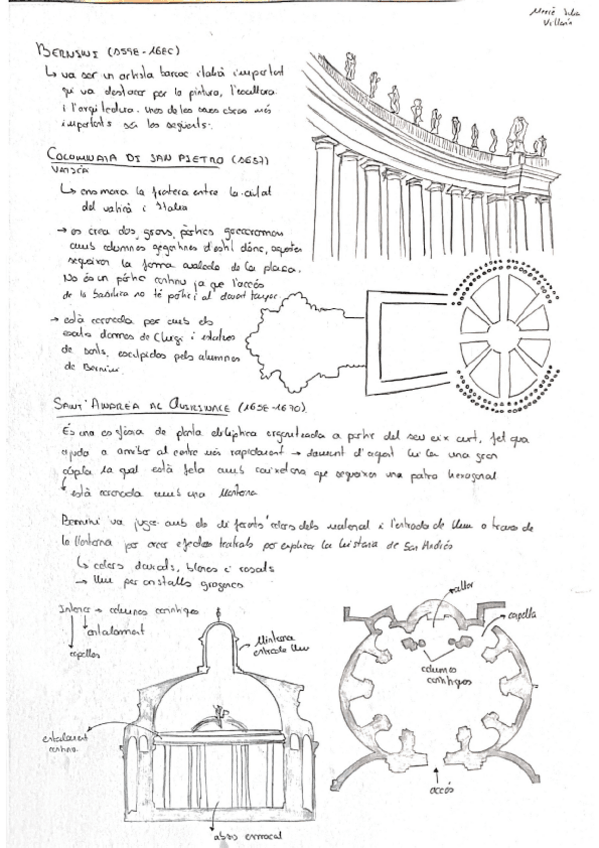 Mercè Silva
Villaria
BERNINI (1598-1680)
↳ va ser un artista barroc italià important
qui va destacar per la pintura, l'escultura
i l'arquitectura. Unes de les seves obres més
importants són les següents:
COLONNATA DI SAN PIETRO (1657)
↳ ens marca la frontera entre la ciutat
del vaticà i Itàlia
→ es crea dos grans pòrtics
amb columnes gegantines d'estil dòric, aquestes
segueixen la forma ovalada de la plaça.
No és un pòrtic continu ja que l'accés
de la basílica no té pòrtic i al davant tampoc
→ està coronada per amb els
escuts d'armes de Chigi i estatues
de sants, esculpides pels alumnes
de Bernini.
SANT'ANDREA AL QUIRINALE (1658-1670)
És una església de planta el·líptica organitzada a partir del seu eix curt, fet que
ajuda a arribar al centre més rapidament → damunt d'aquest hi ha una gran
cúpula la qual està feta amb cassetons que segueixen una patró hexagonal
↳ està coronada amb una llanterna
Bernini va jugar amb els diferents colors dels material i l'entrada de llum a traves de
la llanterna per crear efectes teatrals per explicar la història de San Andrés
↳ colors daurats, blancs i rosats
→ llum per cristalls grogencs
Interior → columnes corinties
entalament
capelles
llanterna
entrada llum
entalament
continu
altar
capella
columnes
corinties
accés